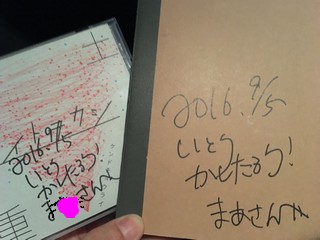 イトウカシ
2016.9/5
いとう
かしたろう!
ま さんへ
重
2016.9/5
いとう
かしたろう!
まあさんへ